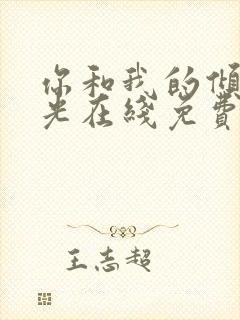 你和我的倾
光在綫免費
王志超